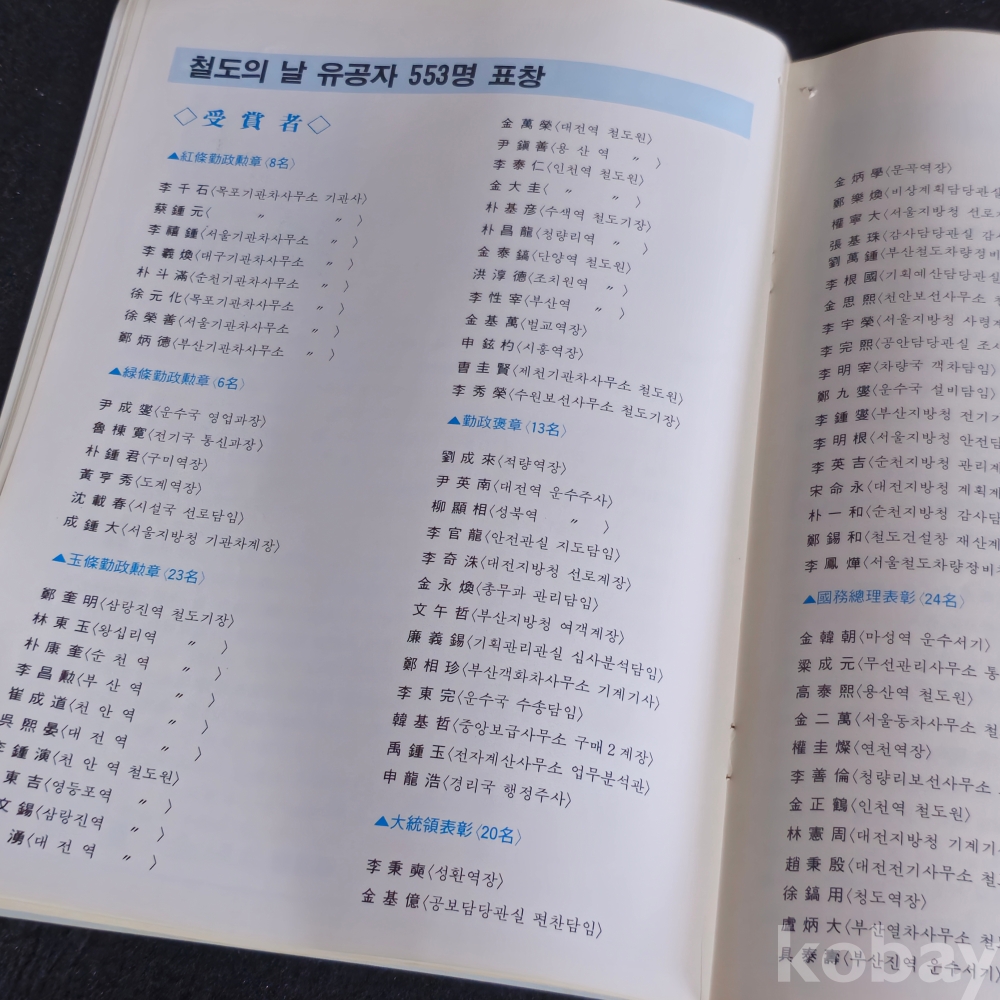 철도의 날 유공자 553명 표창
◇受賞者◇
▲紅條勤政勲章〈8名〉
李千石〈목포기관차사무소 기관사〉
蔡鍾元〈 〃 〃 〉
李禧鍾〈서울기관차사무소 〃 〉
李羲煥〈대구기관차사무소 〃 〉
朴斗滿〈순천기관차사무소 〃 〉
徐元化〈목포기관차사무소 〃 〉
徐榮善〈서울기관차사무소 〃 〉
鄭炳德〈부산기관차사무소 〃 〉
▲緑條勤政勲章〈6名〉
尹成燮〈운수국 영업과장〉
魯棟寬〈전기국 통신과장〉
朴鍾君〈구미역장〉
黃亨秀〈도계역장〉
沈載春〈시설국 선로담임〉
成鍾大〈서울지방청 기관차계장〉
▲玉條勤政勲章〈23名〉
鄭奎明〈삼랑진역 철도기장〉
林東玉〈왕십리역 〃 〉
朴康奎〈순천역 〃 〉
李昌勳〈부산역 〃 〉
崔成道〈천안역 〃 〉
吳熙晏〈대전역 〃 〉
李鍾演〈천안역 철도원〉
東吉〈영등포역 〃 〉
文錫〈삼랑진역 〃 〉
湧〈대전역 〃 〉
金萬榮〈대전역 철도원〉
尹鎭善〈용산역 〃 〉
李泰仁〈인천역 철도원〉
金大圭〈 〃 〃 〉
朴基彦〈수색역 철도기장〉
朴昌龍〈청량리역 〃 〉
金泰鎬〈단양역 철도원〉
洪淳德〈조치원역 〃 〉
李性宰〈부산역 〃 〉
金基萬〈벌교역장〉
申鉉杓〈시흥역장〉
曺圭賢〈제천기관차사무소 철도원〉
李秀榮〈수원보선사무소 철도기장〉
▲勤政褒章〈13名〉
劉成來〈적량역장〉
尹英南〈대전역 운수주사〉
柳顯相〈성북역 〃 〉
李官龍〈안전관실 지도담임〉
李奇洙〈대전지방청 선로계장〉
金永煥〈총무과 관리담임〉
文午哲〈부산지방청 여객계장〉
廉義錫〈기획관리관실 심사분석담임〉
鄭相珍〈부산객화차사무소 기계기사〉
李東完〈운수국 수송담임〉
韓基哲〈중앙보급사무소 구매2계장〉
禹鍾玉〈전자계산사무소 업무분석관〉
申龍浩〈경리국 행정주사〉
▲大統領表彰〈20名〉
李秉奭〈성환역장〉
金基億〈공보담당관실 편찬담임〉
金炳學〈문곡역장〉
鄭樂煥〈비상계획담당관실
權寧大〈서울지방청 선로
張基珠〈감사담당관실 감
劉萬鍾〈부산철도차량정비
李根國〈기획예산담당관실
金思熙〈천안보선사무소
李宇榮〈서울지방청 사령
李完熙〈공안담당관실 조사
李明宰〈차량국 객차담임〉
鄭九燮〈운수국 설비담임〉
李鍾燮〈부산지방청 전기기
李明根〈서울지방청 안전담
李英吉〈순천지방청 관리계
宋命永〈대전지방청 계획계
朴一和〈순천지방청 감사담
鄭錫和〈철도건설창 재산계
李鳳燁〈서울철도차량정비
▲國務總理表彰〈24名〉
金韓朝〈마성역 운수서기〉
梁成元〈무선관리사무소 통
高泰熙〈용산역 철도원〉
金二萬〈서울동차사무소 철
權圭燦〈연천역장〉
李善倫〈청량리보선사무소
金正鶴〈인천역 철도원〉
林憲周〈대전지방청 기계기
趙秉殷〈대전전기사무소 철
徐鎬用〈청도역장〉
盧炳大〈부산열차사무소 철
具泰壽〈부산진역 운수서기〉
kobay